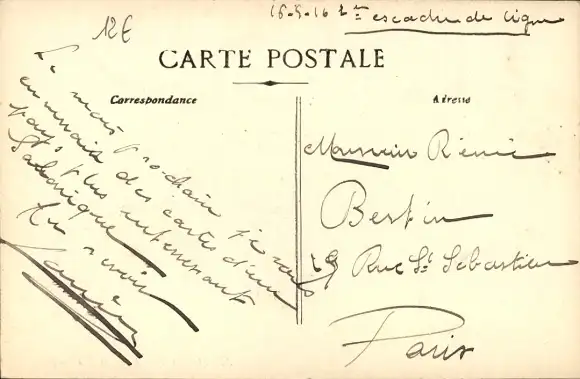 12€
16-5-16 2me escadre de ligne
CARTE POSTALE
Correspondance
Adresse
Le mois prochain je vous
enverrais des cartes d'un
pays plus interessant
Salonique
Au revoir
Monsieur Rémie
Bertin
Rue St Sebastien
Paris